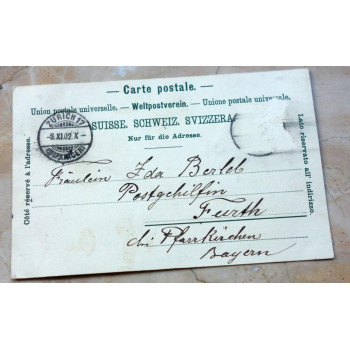 — Carte postale. —
Union postale universelle. — Weltpostverein. — Unione postale universale.
SUISSE. SCHWEIZ. SVIZZERA.
Nur für die Adresse.
Côté réservé à l'adresse.
Lato riservato all' indirizzo.
ZÜRICH 17
-9.XI.02.X-
Fräulein Ida Berleb
Postgehilfin
Furth
bei Pfarrkirchen
Bayern